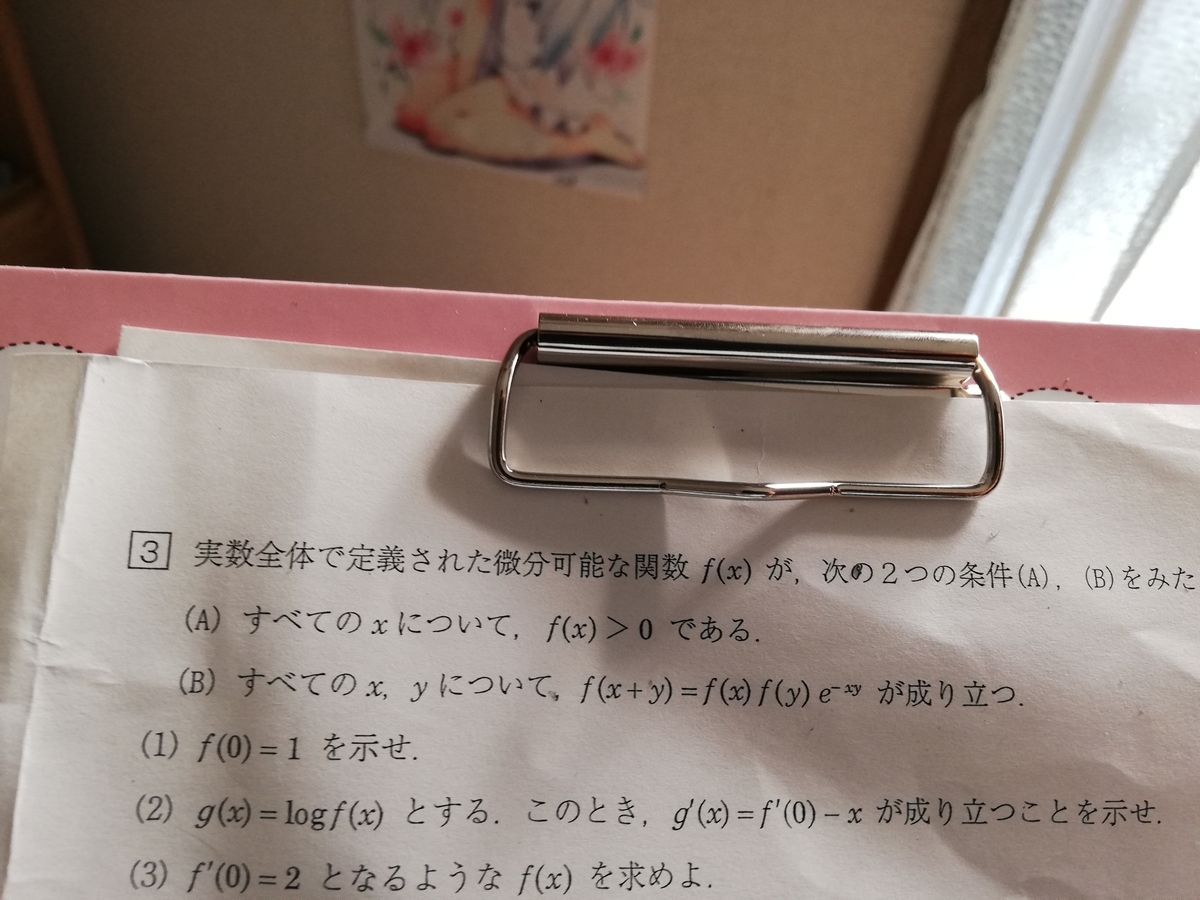 3 実数全体で定義された微分可能な関数 f(x) が, 次の2つの条件(A), (B)をみた
(A) すべての x について, f(x) > 0 である.
(B) すべての x, y について, f(x+y) = f(x) f(y) e^{-xy} が成り立つ.
(1) f(0) = 1 を示せ.
(2) g(x) = log f(x) とする. このとき, g'(x) = f'(0) − x が成り立つことを示せ.
(3) f'(0) = 2 となるような f(x) を求めよ.